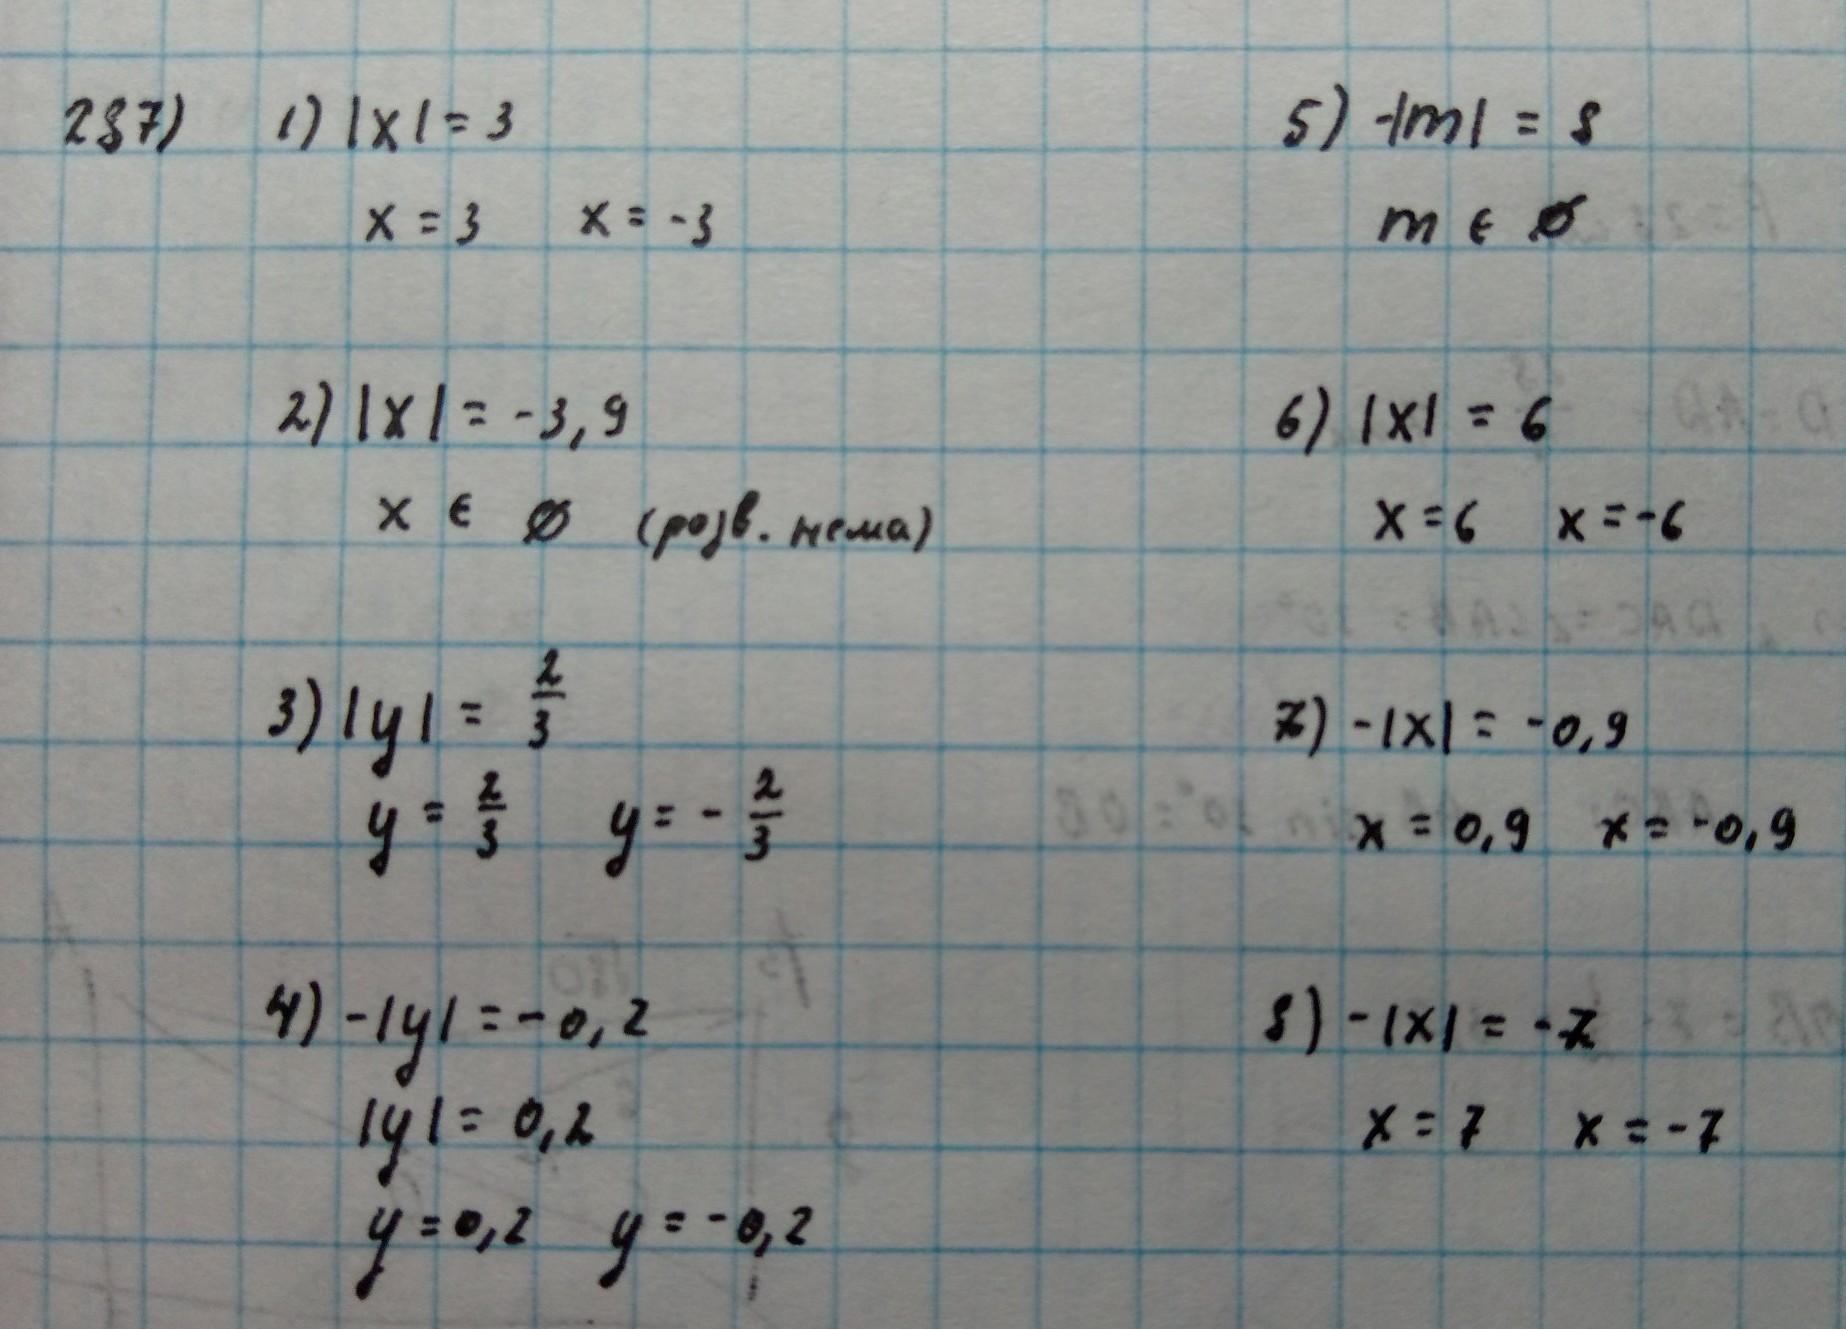 287) 1) |x| = 3
x = 3 x = -3
2) |x| = -3,9
x ∈ ∅ (розв. нема)
3) |y| = 2/3
y = 2/3 y = - 2/3
4) -|y| = -0,2
|y| = 0,2
y = 0,2 y = -0,2
5) -|m| = 8
m ∈ ∅
6) |x| = 6
x = 6 x = -6
7) -|x| = -0,9
x = 0,9 x = -0,9
8) -|x| = -7
x = 7 x = -7